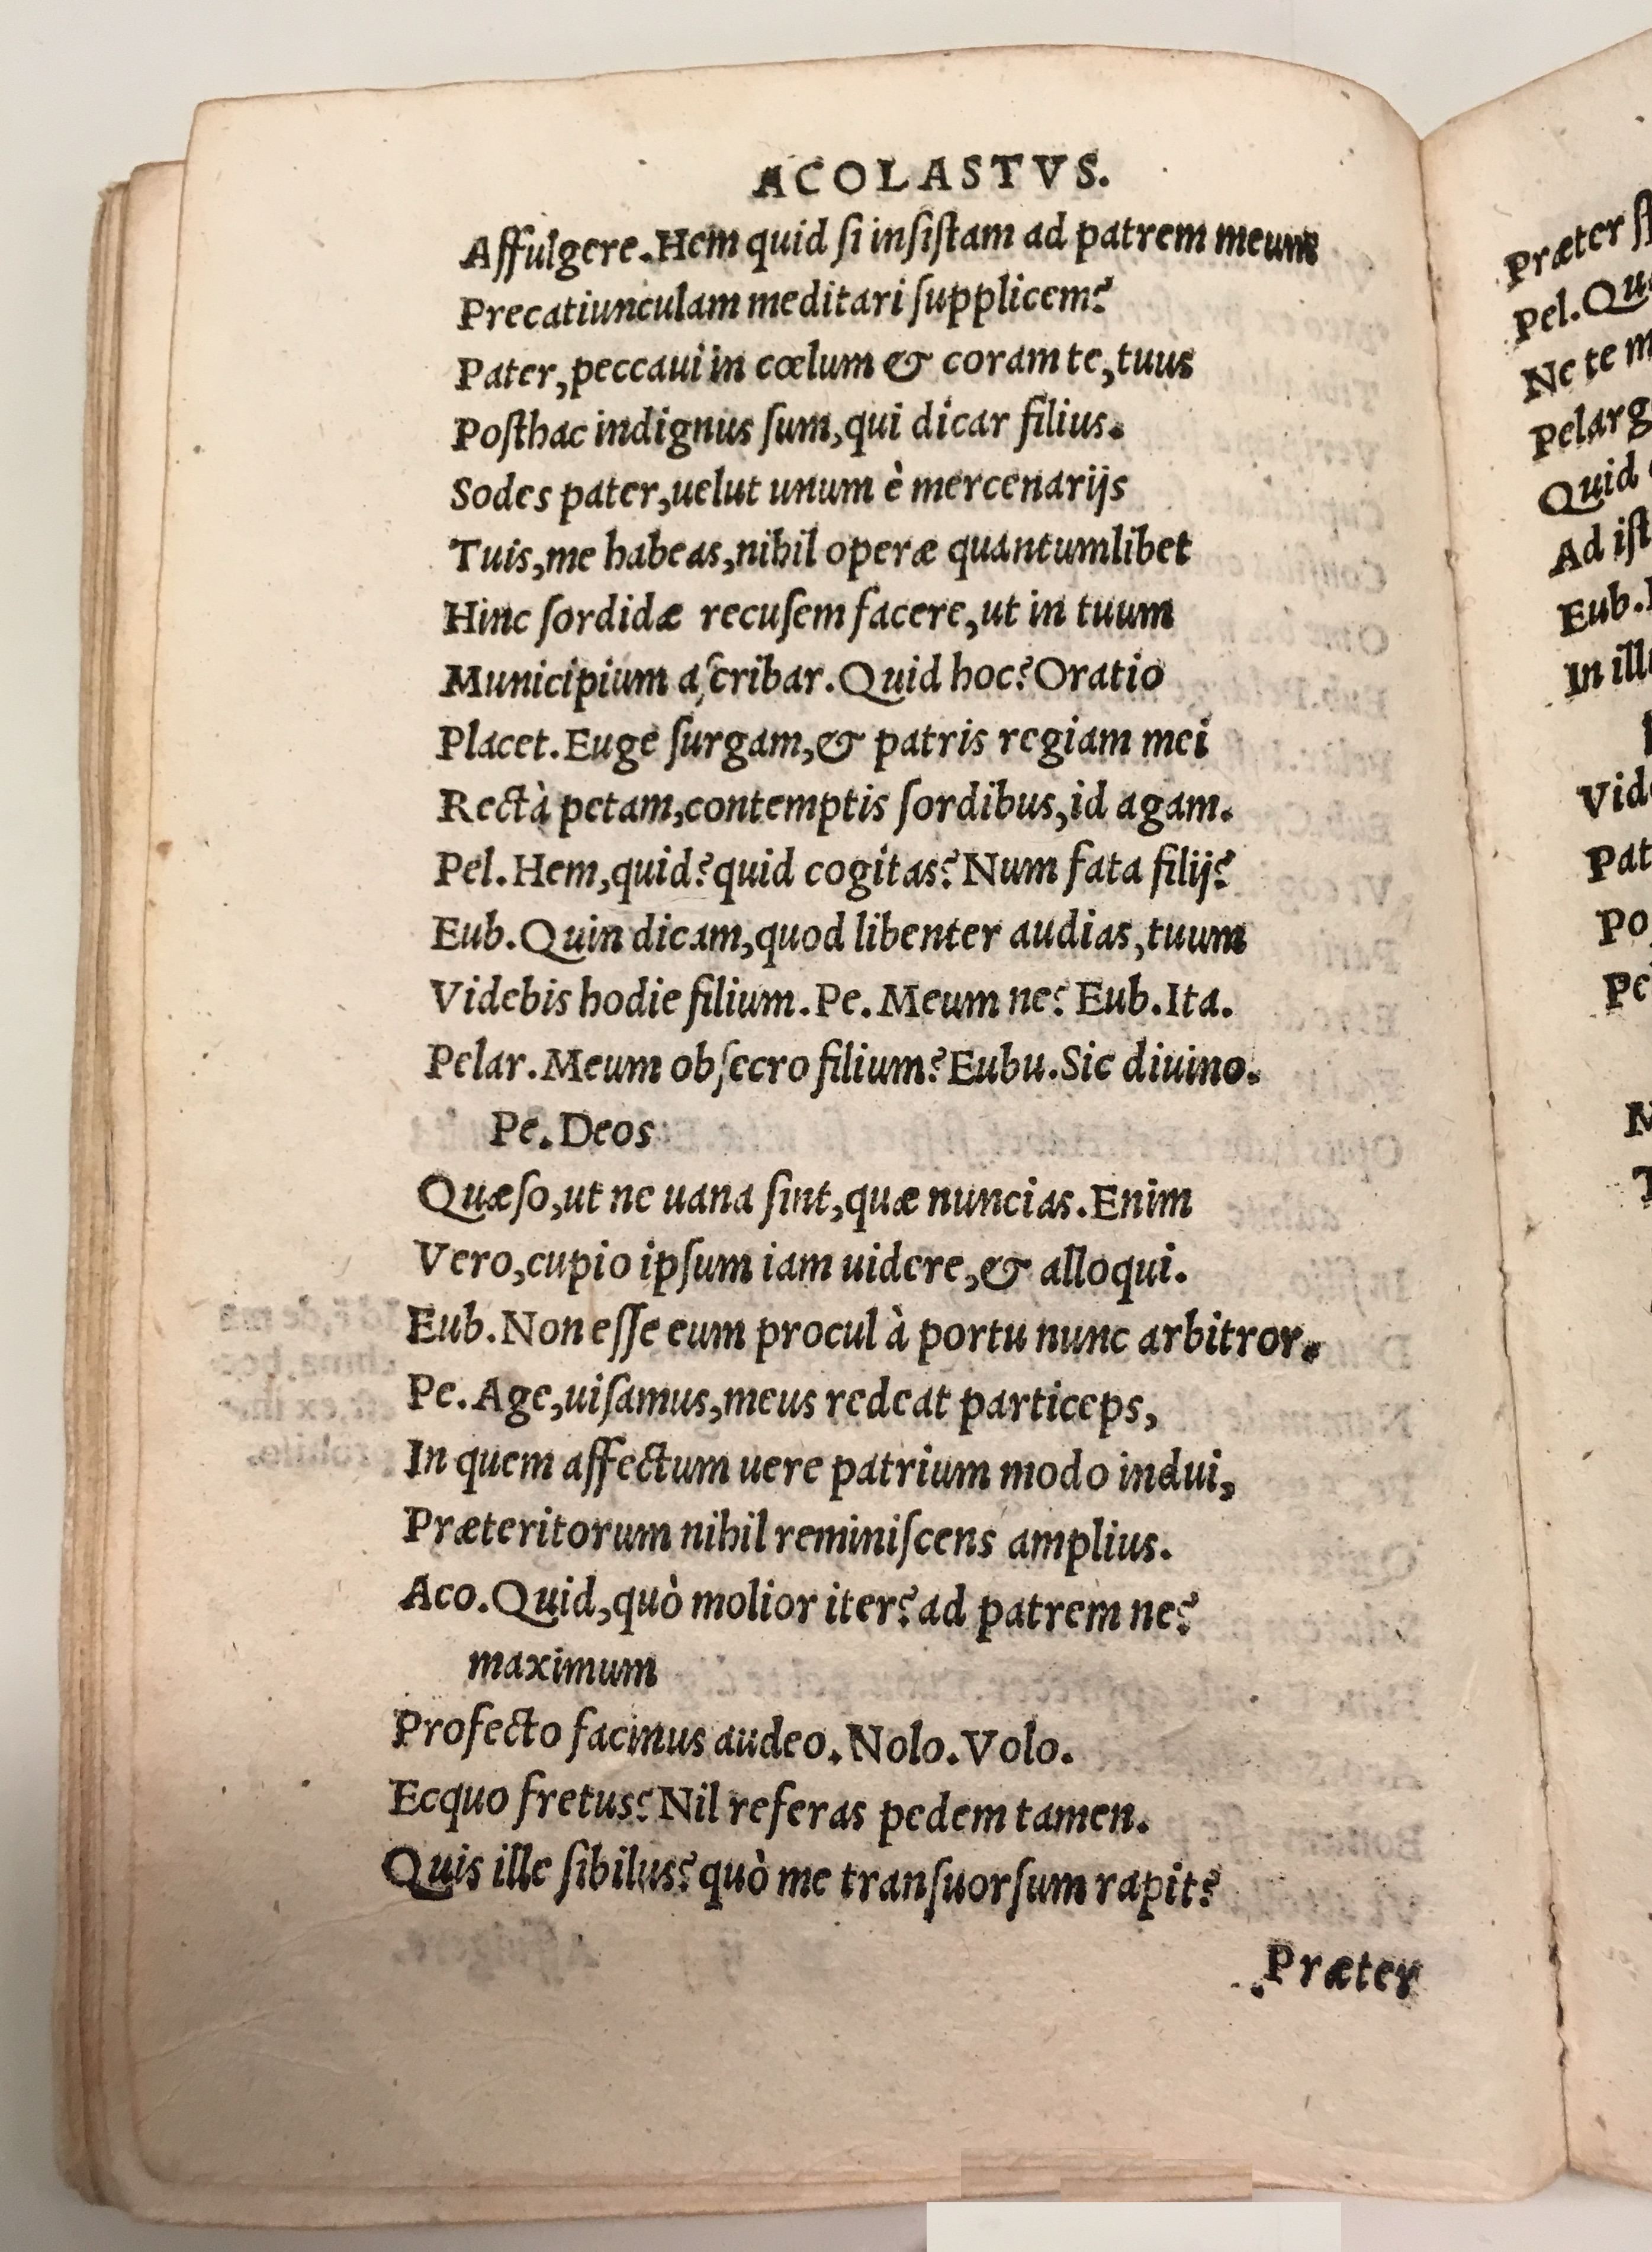 ACOLASTVS.
Affulgere. Hem quid ſi inſiſtam ad patrem meum
Precatiunculam meditari ſupplicem?
Pater, peccaui in cœlum & coram te, tuus
Poſthac indignus ſum, qui dicar filius.
Sodes pater, uelut unum è mercenarijs
Tuis, me habeas, nihil operæ quantumlibet
Hinc ſordidæ recuſem facere, ut in tuum
Municipium aſcribar. Quid hoc? Oratio
Placet. Euge ſurgam, & patris regiam mei
Rectà petam, contemptis ſordibus, id agam.
Pel. Hem, quid? quid cogitas? Num fata filij?
Eub. Quin dicam, quod libenter audias, tuum
Videbis hodie filium. Pe. Meum ne? Eub. Ita.
Pelar. Meum obſecro filium? Eubu. Sic diuino.
Pe. Deos
Quæſo, ut ne uana ſint, quæ nuncias. Enim
Vero, cupio ipſum iam uidere, & alloqui.
Eub. Non eſſe eum procul à portu nunc arbitror.
Pe. Age, uiſamus, meus redeat particeps,
In quem affectum uere patrium modo indui,
Præteritorum nihil reminiſcens amplius.
Aco. Quid, quò molior iter? ad patrem ne?
maximum
Profecto facinus audeo. Nolo. Volo.
Ecquo fretus? Nil referas pedem tamen.
Quis ille ſibilus? quò me tranſuorſum rapit?
Præter
Præter
Pel. Qu
Ne te m
Pelarg
Quid
Ad iſt
Eub.
In ill
Vid
Pat
Po
Pe